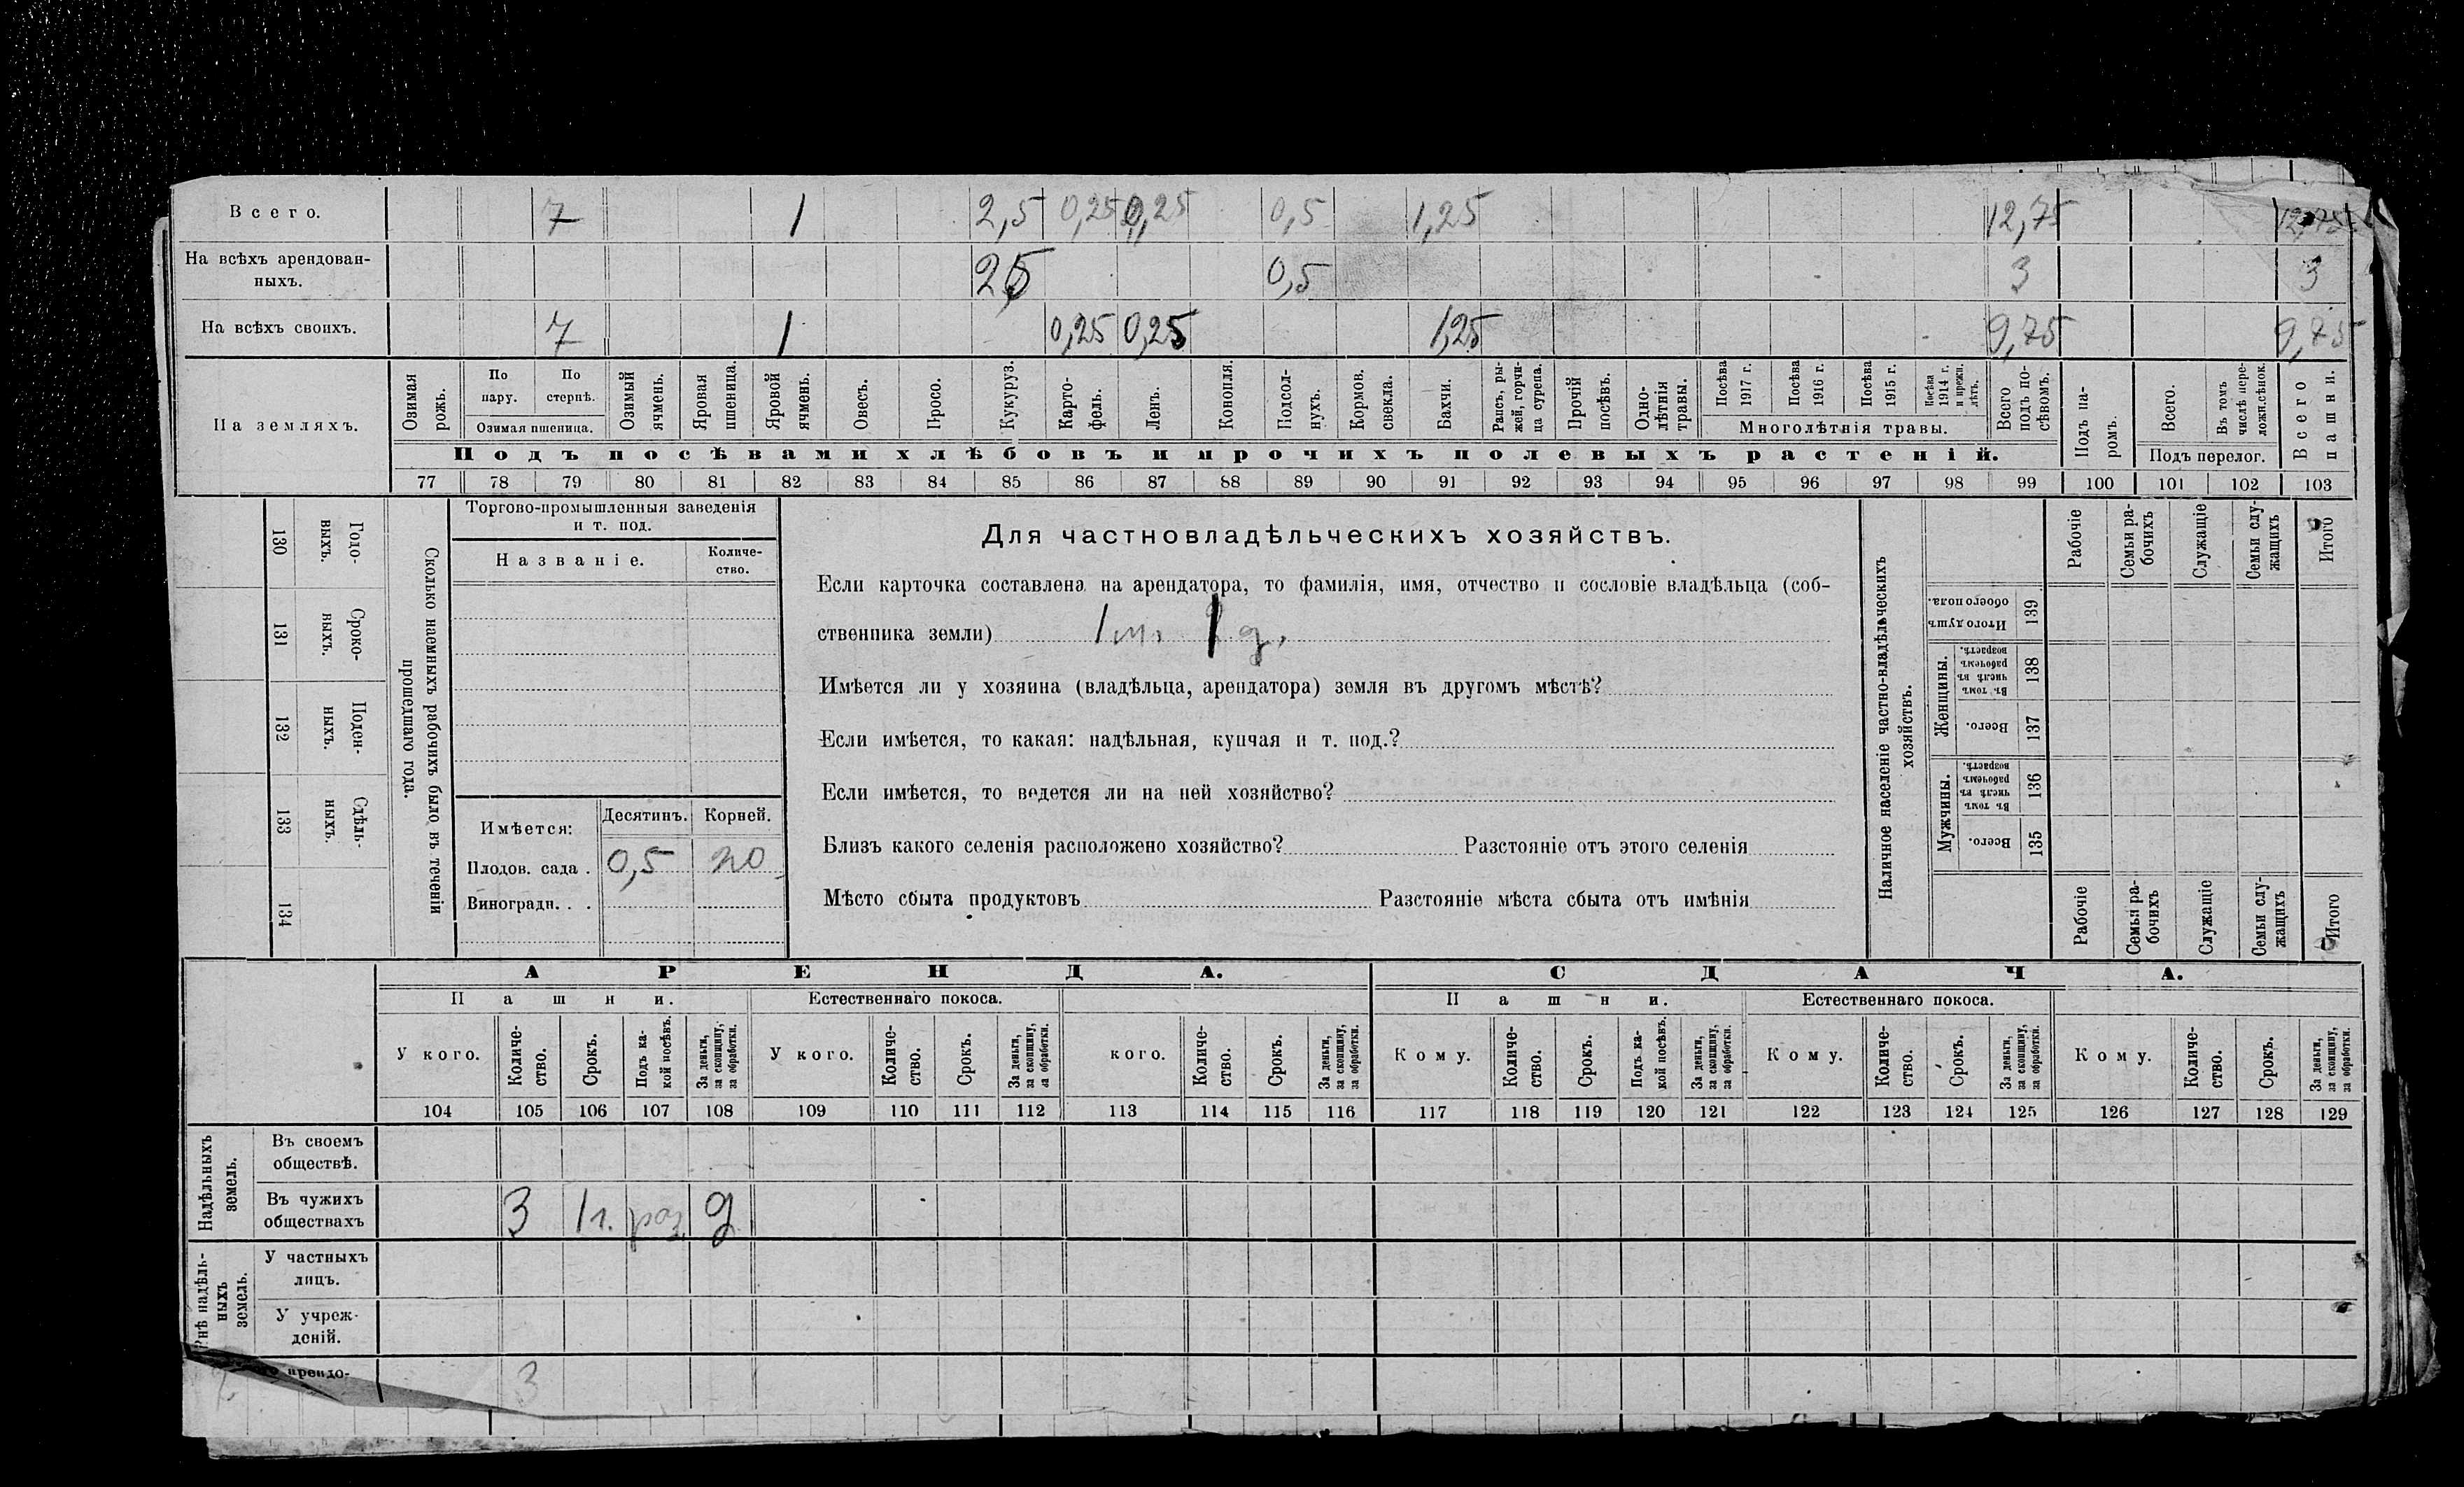 Всего. 7 1 2,5 0,25 0,25 0,5 1,25 12,75 12,75
На всѣхъ арендован-
ныхъ. 2,5 0,5 3 3
На всѣхъ своихъ. 7 1 0,25 0,25 1,25 9,75 9,75
На земляхъ.
Озимая рожь.
По пару.
По стернѣ.
Озимая пшеница.
Озимый ячмень.
Яровая пшеница.
Яровой ячмень.
Овесъ.
Просо.
Кукуруз.
Карто-
фель.
Ленъ.
Конопля.
Подсол-
нухъ.
Кормов. свекла.
Бахчи.
Рапсъ, ры-
жей, горчи-
ца сурепа.
Прочій посѣвъ.
Одно-
лѣтнія травы.
Посѣва 1917 г.
Посѣва 1916 г.
Посѣва 1915 г.
Посѣва 1914 г. и прежн. лѣтъ.
Многолѣтнія травы.
Всего подъ по-
сѣвомъ.
Подъ па-
ромъ.
Всего.
Въ томъ числѣ пере-
ложн.сѣнок.
Подъ перелог.
Всего пашни.
Подъ посѣвами хлѣбовъ и прочихъ полевыхъ растеній.
77 78 79 80 81 82 83 84 85 86 87 88 89 90 91 92 93 94 95 96 97 98 99 100 101 102 103
130 Годо-
выхъ.
131 Сроко-
ныхъ.
132 Поден-
ныхъ.
133 Сдѣль-
ныхъ.
134
Сколько наемныхъ рабочихъ было въ теченіи
прошедшаго года.
Торгово-промышленныя заведенія
и т. под.
Названіе.
Количе-
ство.
Имѣется: Десятинъ. Корней.
Плодов. сада . 0,5 20
Виноградн. . .
Для частновладѣльческихъ хозяйствъ.
Если карточка составлена на арендатора, то фамилія, имя, отчество и сословіе владѣльца (соб-
ственника земли) 1 м. 1 д.
Имѣется ли у хозяина (владѣльца, арендатора) земля въ другомъ мѣстѣ?
Если имѣется, то какая: надѣльная, купчая и т. под.?
Если имѣется, то ведется ли на ней хозяйство?
Близъ какого селенія расположено хозяйство? Разстояніе отъ этого селенія
Мѣсто сбыта продуктовъ Разстояніе мѣста сбыта отъ имѣнія
Наличное населеніе частно-владѣльческихъ
хозяйствъ.
Рабочіе
Семьи ра-
бочихъ
Служащіе
Семьи слу-
жащихъ
Итого
Итого душъ
обоего пола. 139
Женщины.
Въ томъ числѣ въ рабочемъ возрастѣ. 138
Всего. 137
Мужчины.
Въ томъ числѣ въ рабочемъ возрастѣ. 136
Всего. 135
Рабочіе
Семьи ра-
бочихъ
Служащіе
Семьи слу-
жащихъ
Итого
АРЕНДА. СДАЧА.
Пашни. Естественнаго покоса. Пашни. Естественнаго покоса.
У кого.
Количе-
ство.
Срокъ.
Подъ ка-
кой посѣвъ.
За деньги,
за скопщину,
за обработки.
У кого.
Количе-
ство.
Срокъ.
За деньги,
за скопщину,
за обработки.
кого.
Количе-
ство.
Срокъ.
За деньги,
за скопщину,
за обработки.
Кому.
Количе-
ство.
Срокъ.
Подъ ка-
кой посѣвъ.
За деньги,
за скопщину,
за обработки.
Кому.
Количе-
ство.
Срокъ.
За деньги,
за скопщину,
за обработки.
Кому.
Количе-
ство.
Срокъ.
За деньги,
за скопщину,
за обработки.
104 105 106 107 108 109 110 111 112 113 114 115 116 117 118 119 120 121 122 123 124 125 126 127 128 129
Надѣльныхъ
земель.
Въ своемъ
обществѣ.
Въ чужихъ
обществахъ 3 1 г. раз д
Внѣ надѣль-
ныхъ
земель.
У частныхъ
лицъ.
У учреж-
деній.
арендо- 3